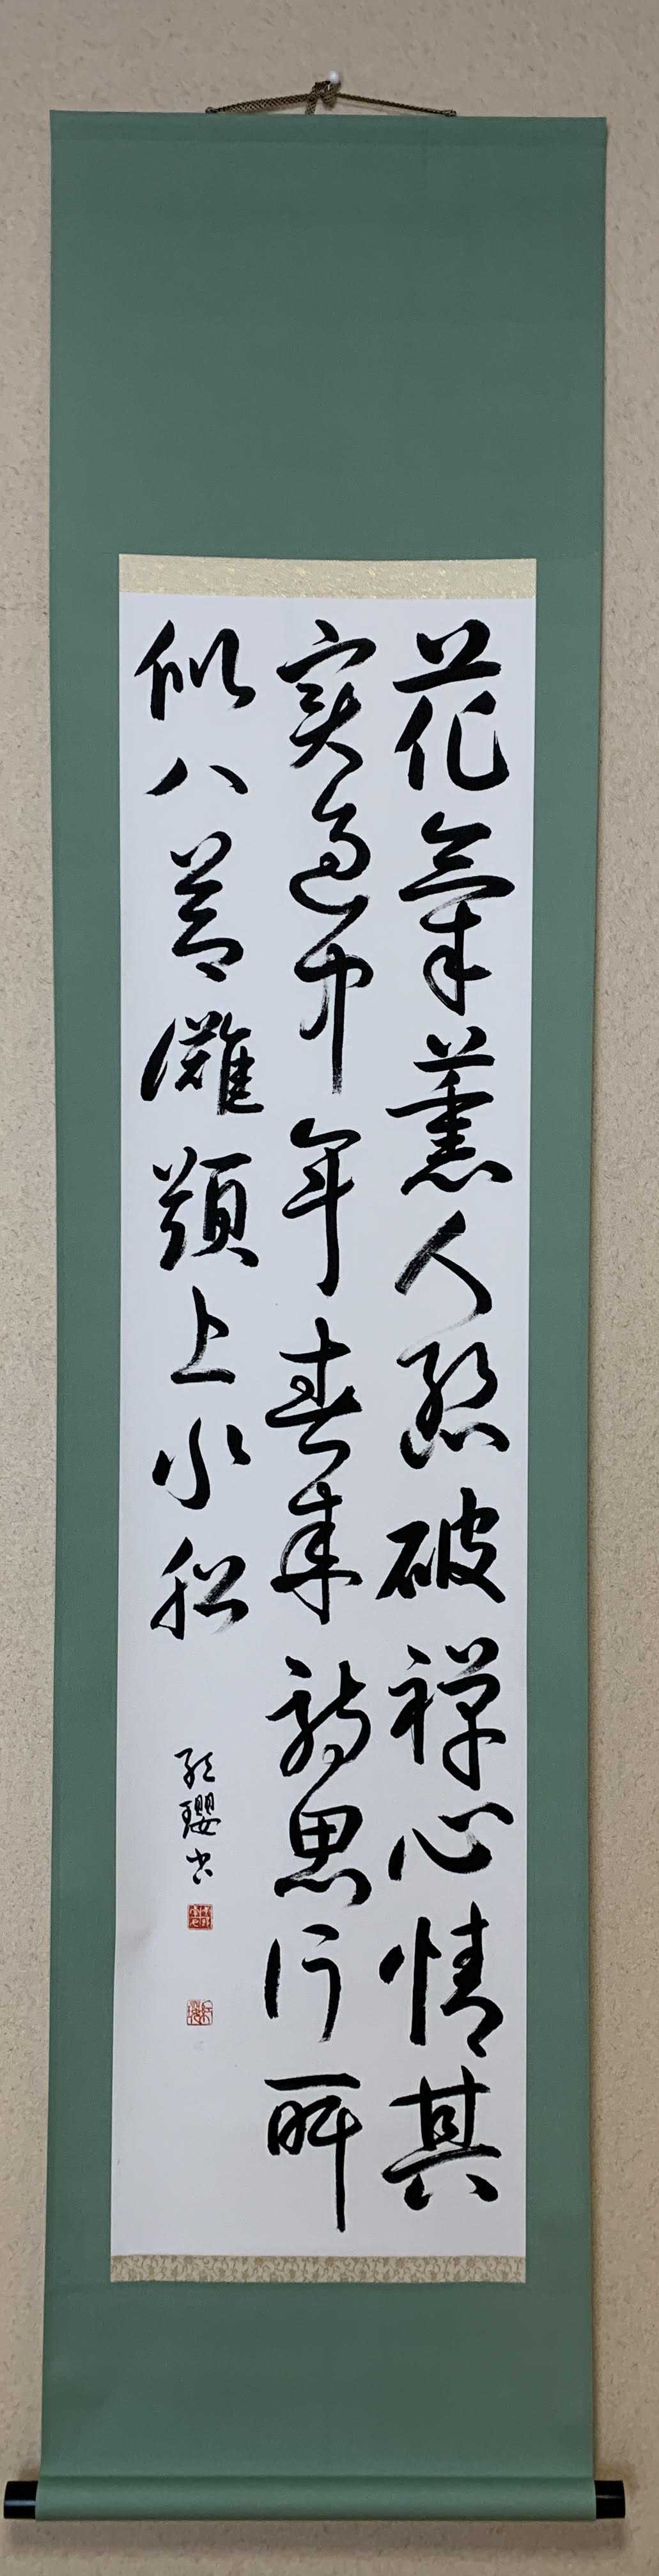 花氣薰人欲破禪心情其
實過中年春來詩思何所
似八節灘頭上水船
瓔書